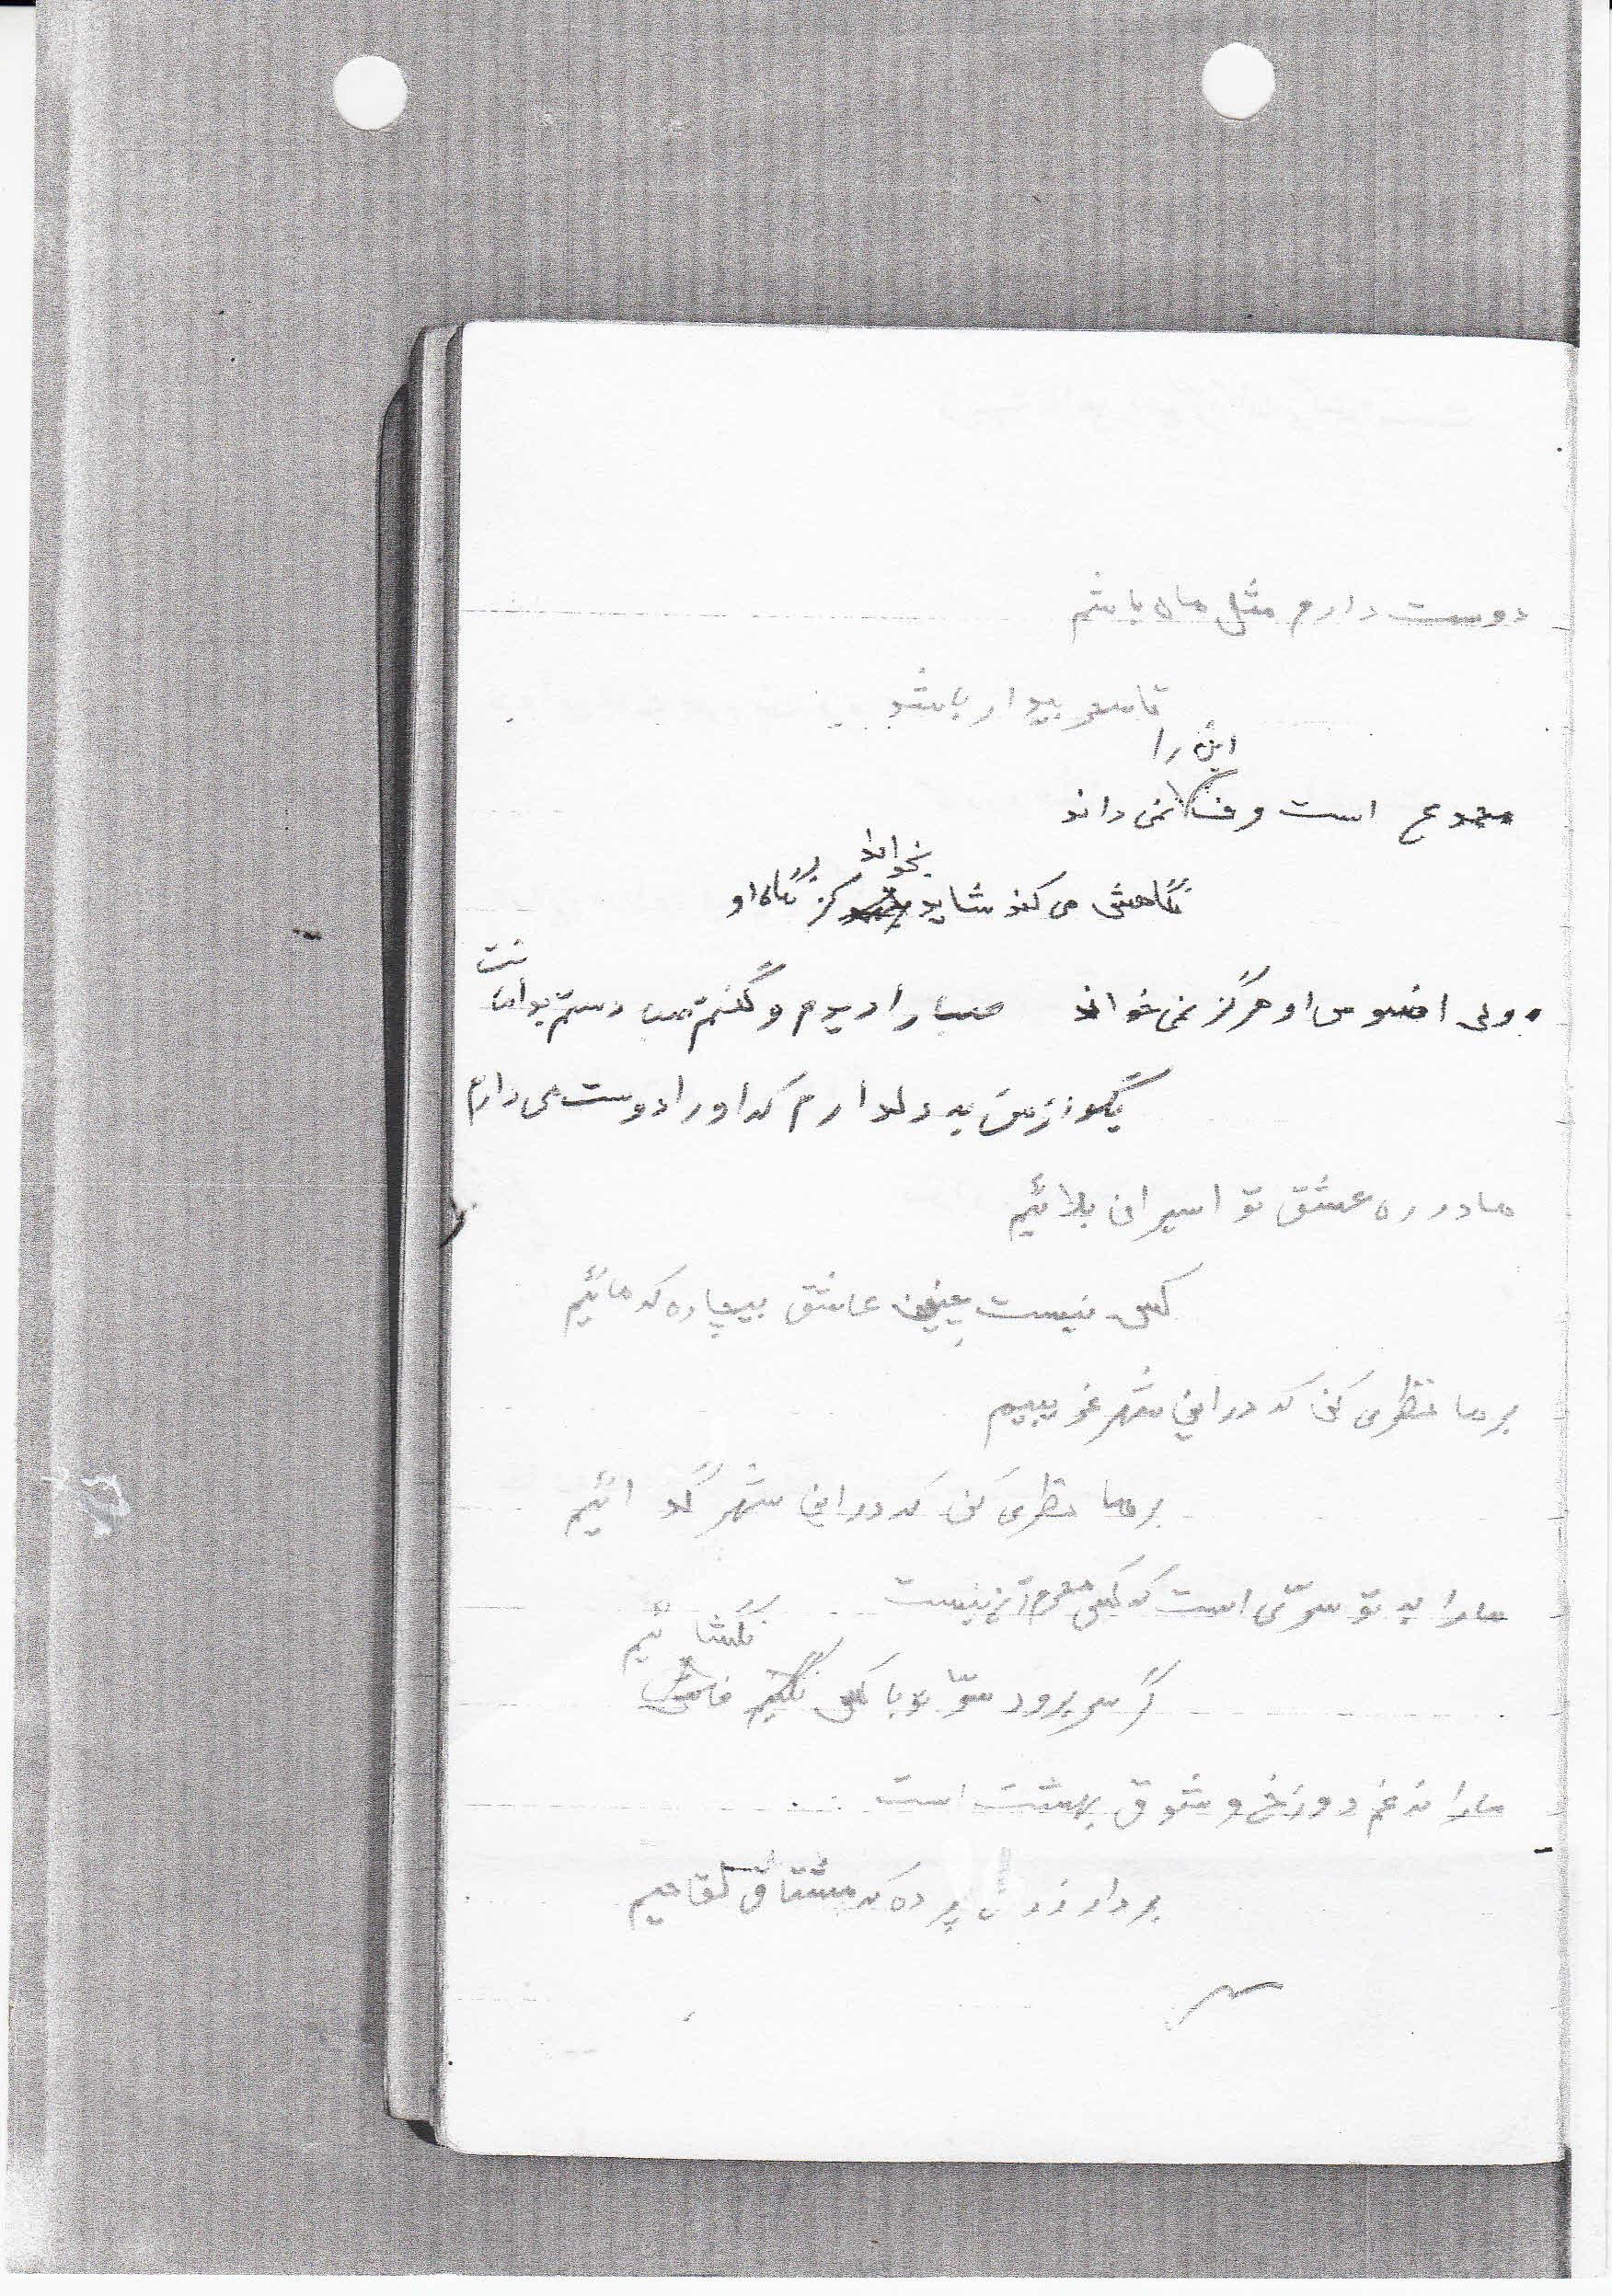 دوست دارم مثل ماه باشم
تا سحر بیدار باشد
این را
است و قت نمی داند
بخواند
نگاهش می کند شاید کز نگاه او
ولی افسوس او هرگز نمی خواند صبا را دیدم و گفتم صبا دستم بدامانت
بگو از من به دلدارم که او را دوست می دارم
ما در ره عشق تو اسیران بلائیم
کس نیست چنین عاشق بیچاره که مائیم
بر ما نظری کن که در این شهر غریبیم
بر ما نظری کن که در این شهر گدائیم
ما را به تو سرّی است که کس محرم آن نیست
نگشائیم
گر سر برود سرّ تو با کس
ما را نه غم دوزخ و شوق بهشت است
بردار ز رخ پرده که مشتاق لقاییم